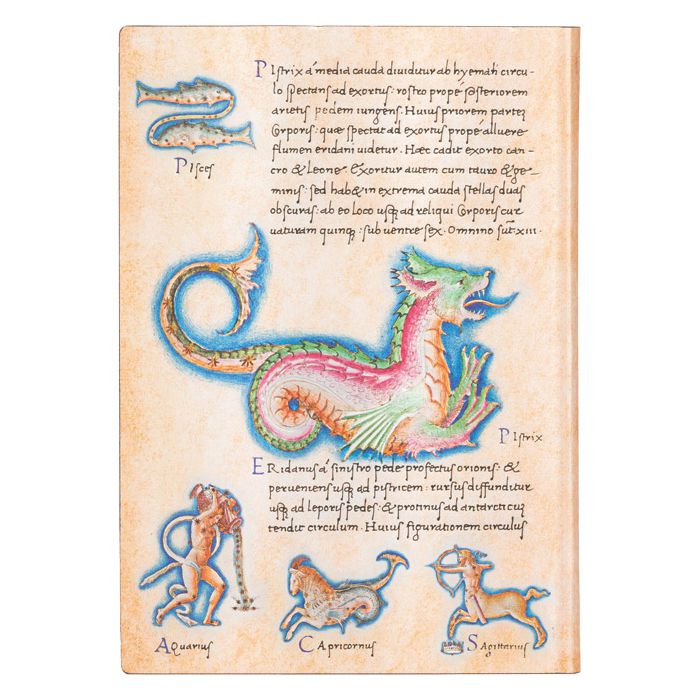 PIstrix á media cauda diuiditur ab hyemali circu-
lo spectans ad exortus: rostro propé posteriorem
arietis pedem iungens. Huius priorem partem
Corporis: quæ spectat ad exortus propé alluere
flumen eridani uidetur. Hæc cadit exorto can-
cro & Leone. Exoritur autem cum tauro & ge-
minis: sed hab& in extrema cauda stellas duas
obscuras: ab eo loco usq ad reliqui Corporis cur
uaturam quinq: sub uentre sex. Omnino sūt xiii.
PIsces
PIstrix
ERidanus á sinistro pede profectus orionis: &
perueniens usq ad pistricem: rursus diffunditur
usq ad leporis pedes: & protinus ad antarcticū
tendit circulum. Huius figurationem circulus
AQuarius
CApricornus
SAgittarius